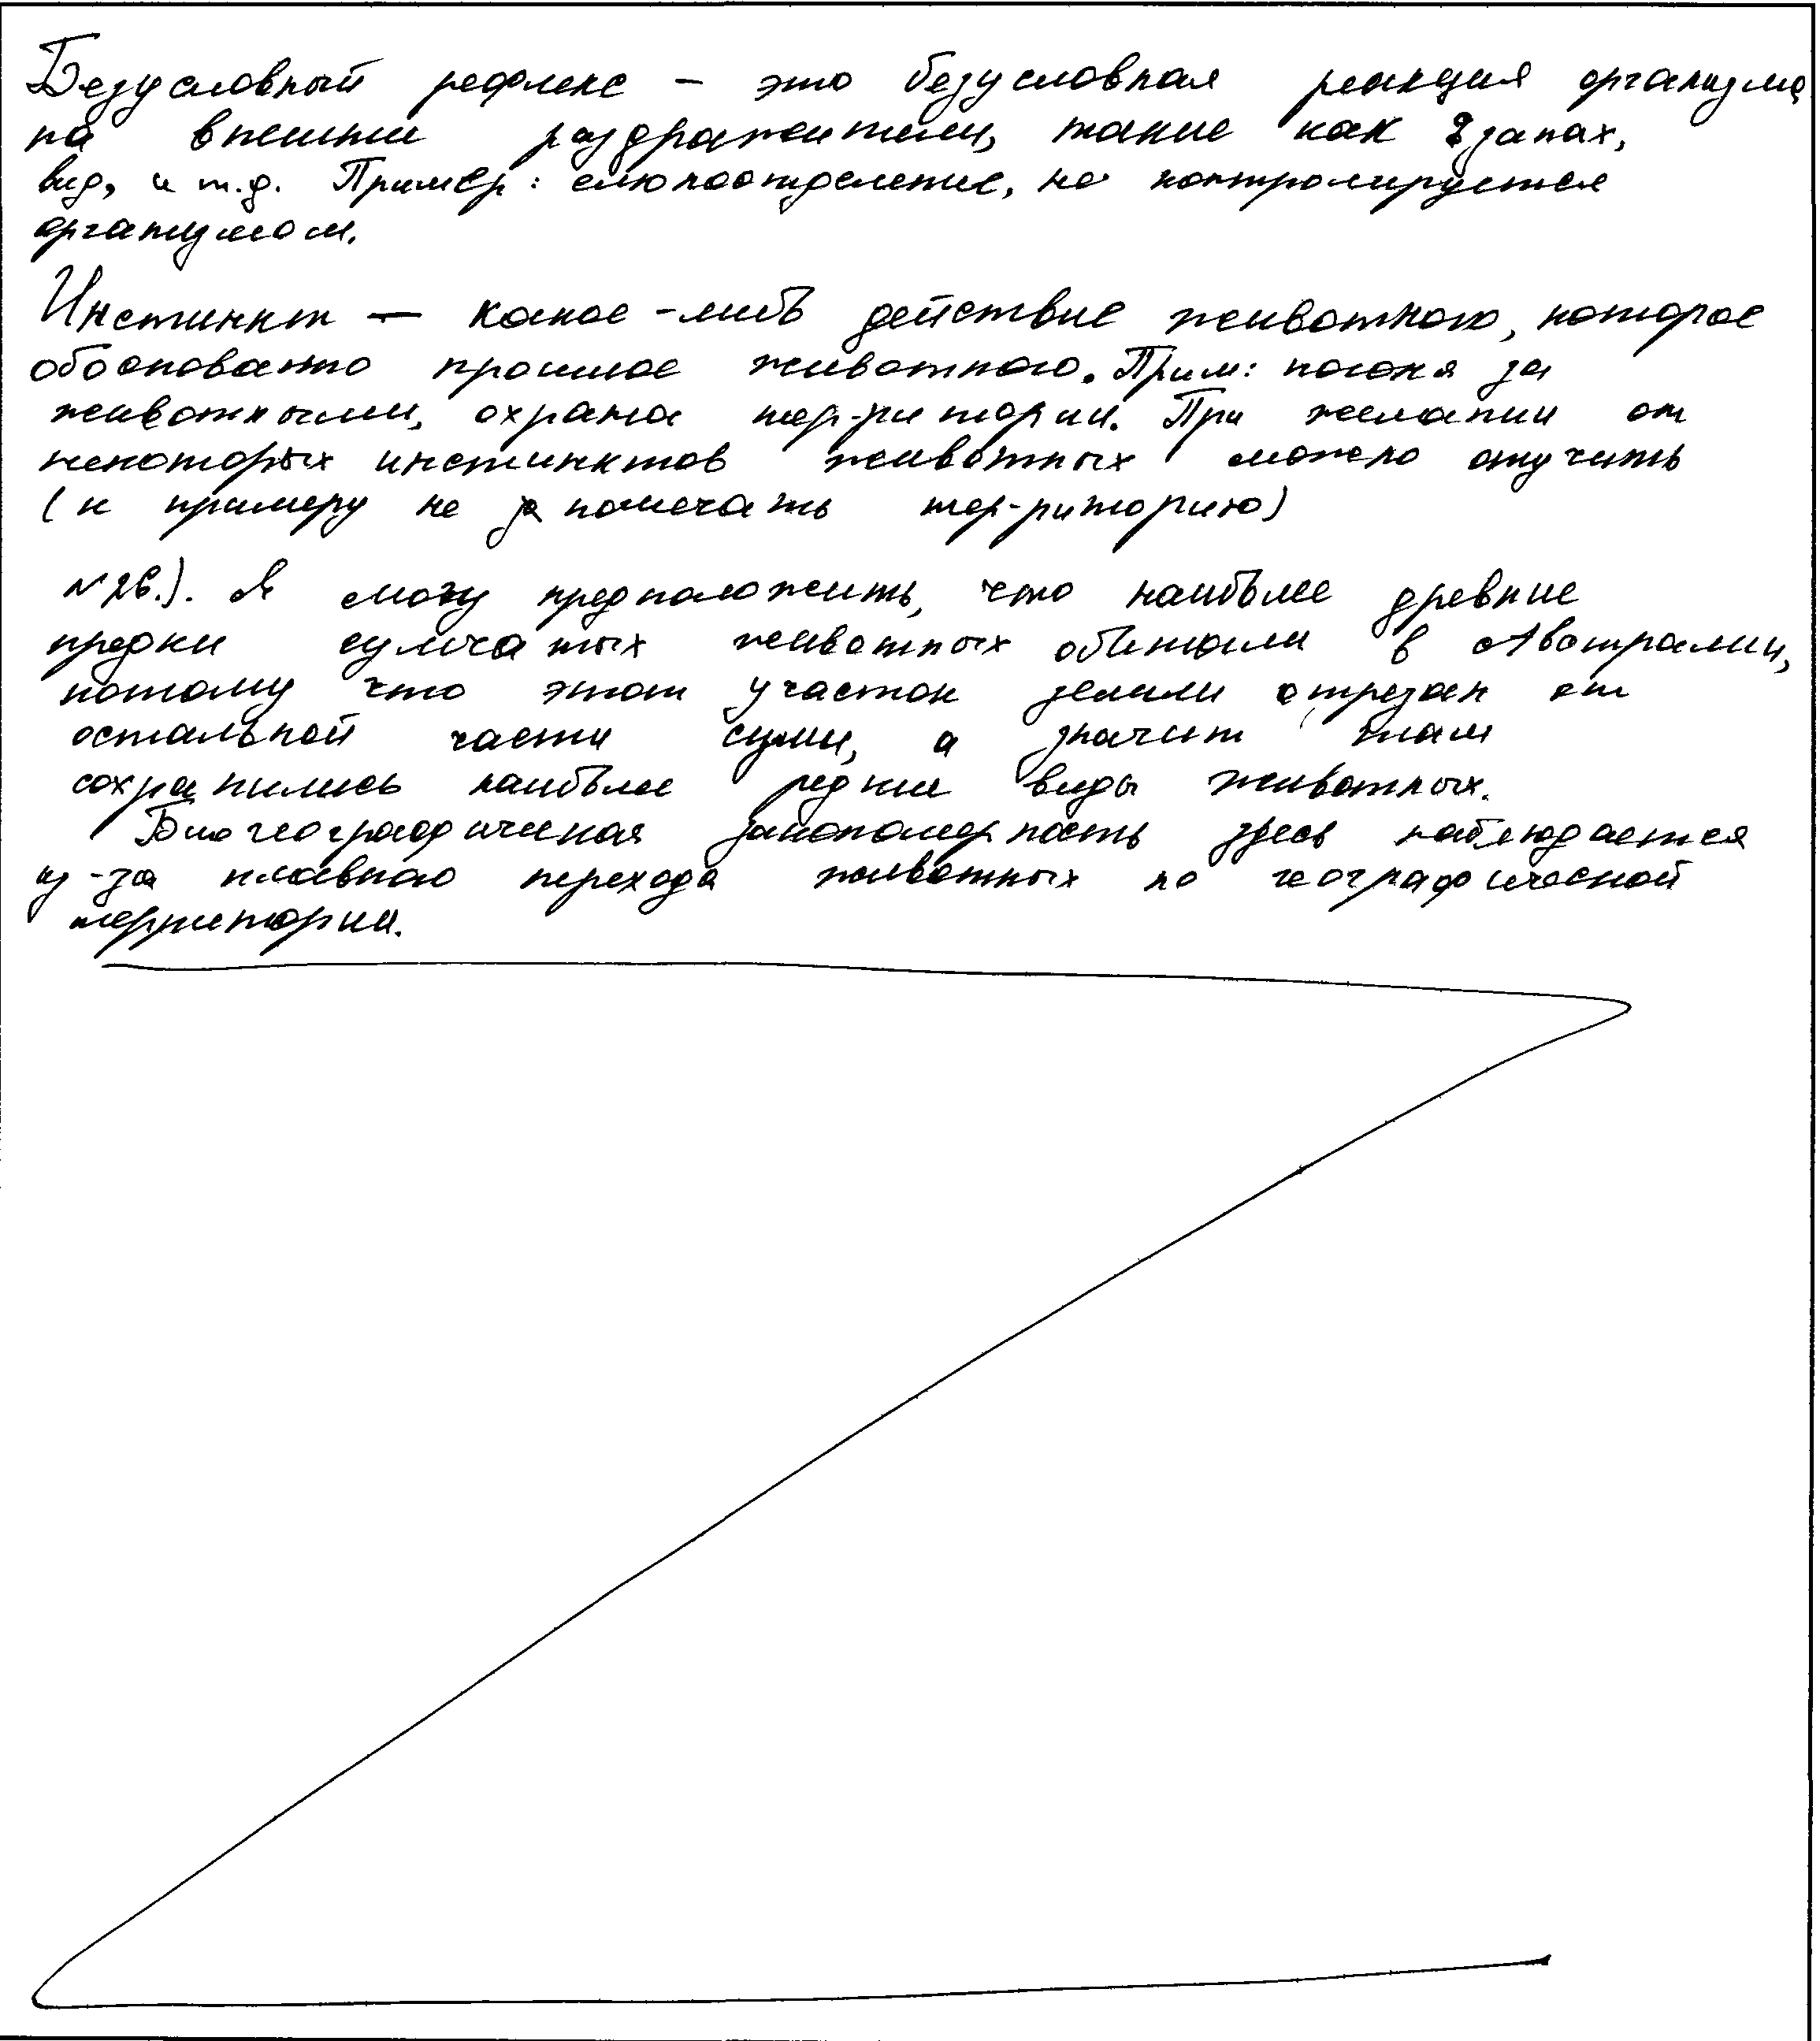 Безусловный рефлекс – это безусловная реакция организма
на внешние раздражители, такие как запах,
вид, и т.д. Пример: слюноотделение, не контролируется
организмом.
Инстинкт – какое-либо действие животного, которое
обосновано прошлое животного. Прим: погоня за
животными, охрана тер-ритории. При желании от
некоторых инстинктов животных можно отучить
(к примеру не помечать тер-риторию)
№26.). Я могу предположить, что наиболее древние
предки сумчатых животных обитали в Австралии,
потому что этот участок земли отрезан от
остальной части суши, а значит там
сохранились наиболее редкие виды животных.
Биогеографическая закономерность здесь наблюдается
из-за плавного перехода животных по географической
территории.